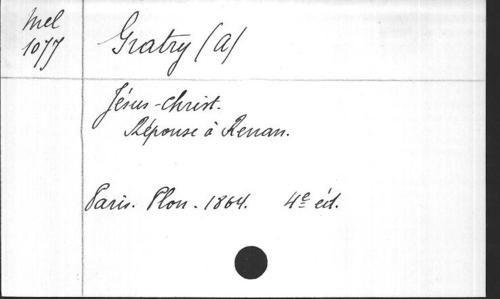 Mel
1077
Gratry (A)
Jésus-Christ.
Réponse à Renan.
Paris. Plon. 1864. 4e éd.